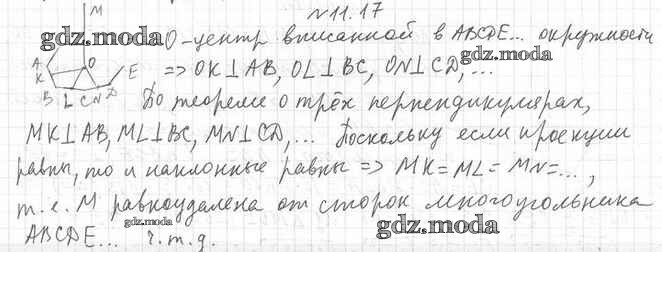 №11.17
M
gdz.moda O-центр вписанной в ABCDE... окружности
gdz.moda
A K O E
=> OK⊥AB, OL⊥BC, ON⊥CD, ...
B L C N D
По теореме о трёх перпендикулярах,
MK⊥AB, ML⊥BC, MN⊥CD, ... Поскольку если проекции
равны, то и наклонные равны => MK=ML=MN=...,
т.е. M равноудалена от сторон многоугольника
gdz.moda gdz.moda
ABCDE... ч.т.д.